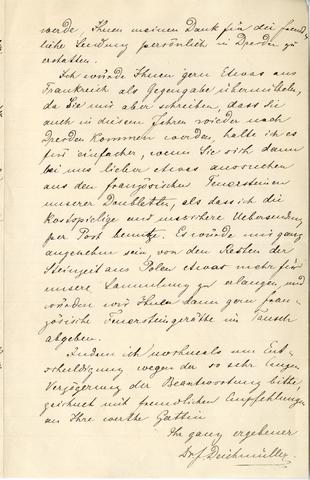 werde, Ihnen meinen Dank für die freund-
liche Sendung persönlich in Dresden zu
erstatten.
Ich würde Ihnen gern Etwas aus
Frankreich als Gegengabe übermitteln,
da Sie mir aber schreiben, dass Sie
auch in diesem Jahre wieder nach
Dresden kommen werden, halte ich es
für einfacher, wenn Sie sich dann
bei uns lieber etwas aussuchen
aus den französischen Feuersteinen
unserer Doubletten, als dass ich die
kostspielige und unsichere Uebersendung
per Post benutze. Es würde mir ganz
angenehm sein, von den Resten der
Steinzeit aus Polen etwas mehr für
unsere Sammlung zu erlangen, und
würden wir Ihnen dann gern fran-
zösische Feuersteingeräthe im Tausch
abgeben.
Indem ich nochmals um Ent-
schuldigung wegen der so sehr langen
Verzögerung der Beantwortung bitte,
zeichnet mit freundlichen Empfehlungen
an Ihre werthe Gattin
Ihr ganz ergebener
Dr. J. Deichmüller